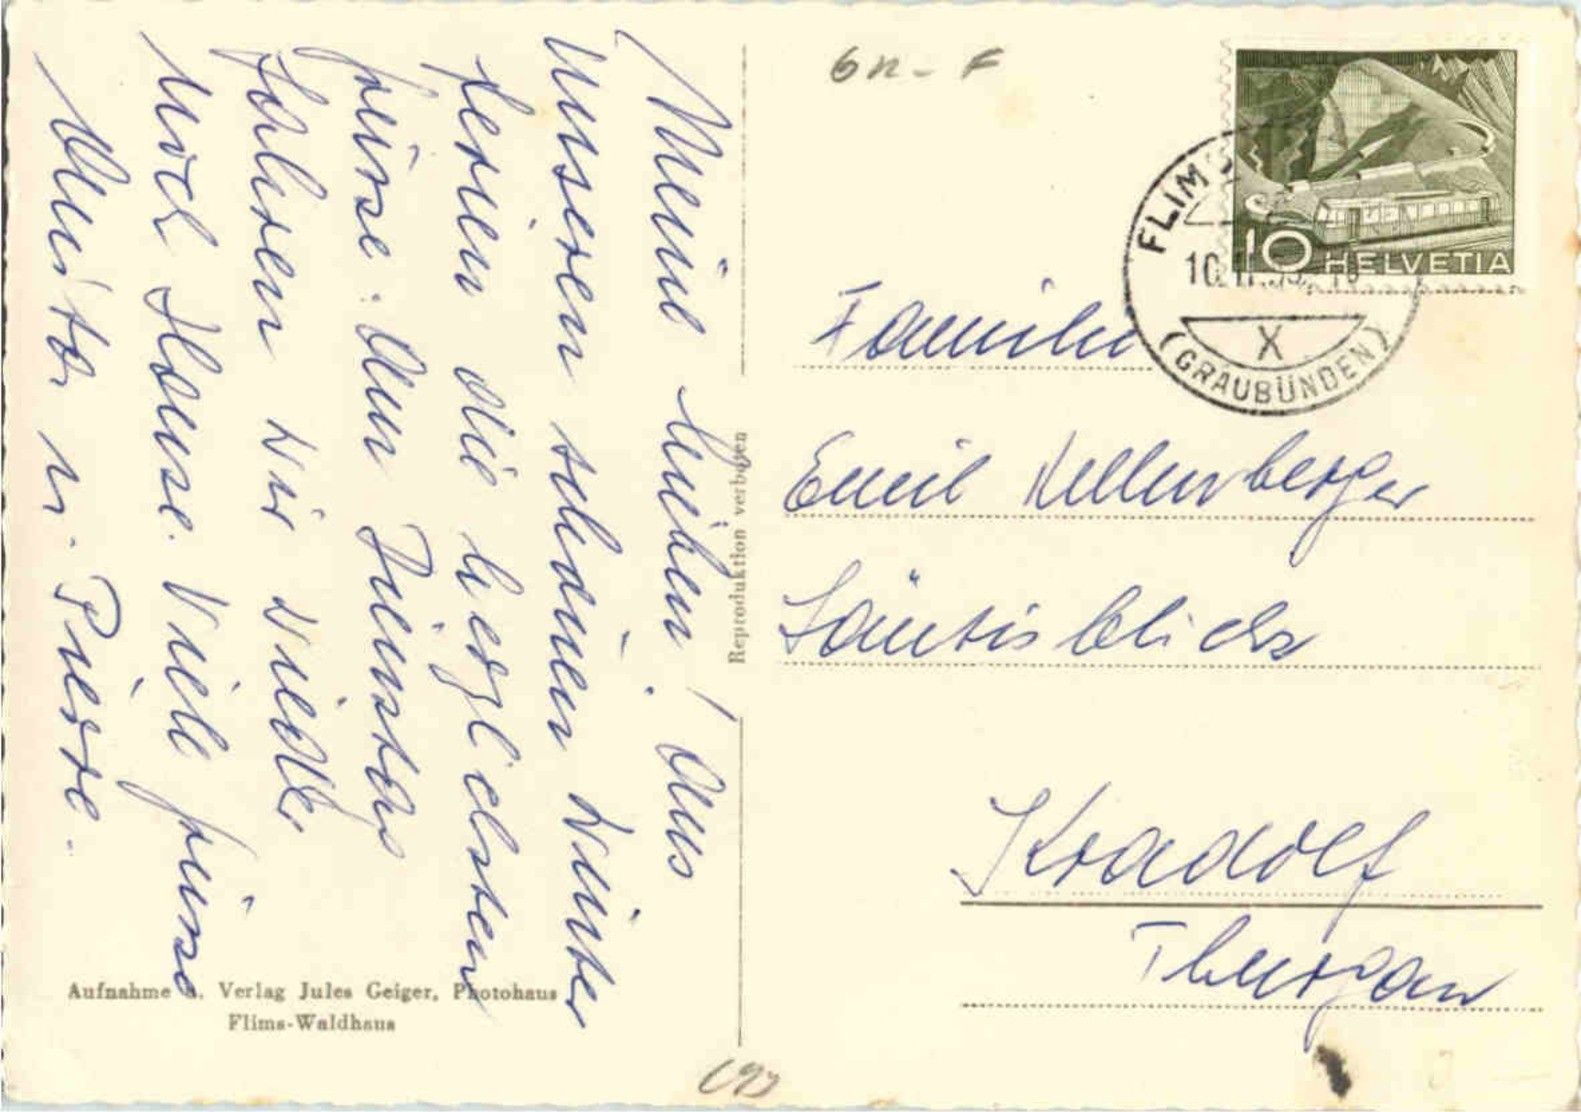 Meine lieben! Aus
unseren schönen Winter
ferien die herzlichsten
Grüsse. Am Dienstag
fahren wir wieder
nach Hause. Viele Grüsse
Anita u. Pierre.
Aufnahme u. Verlag Jules Geiger, Photohaus
Flims-Waldhaus
Reproduktion verboten
6n - F
FLIMS
10
X
(GRAUBÜNDEN)
10 HELVETIA
Familie
Emil Kellenberger
Säntisblick
Kradolf
Thurgau